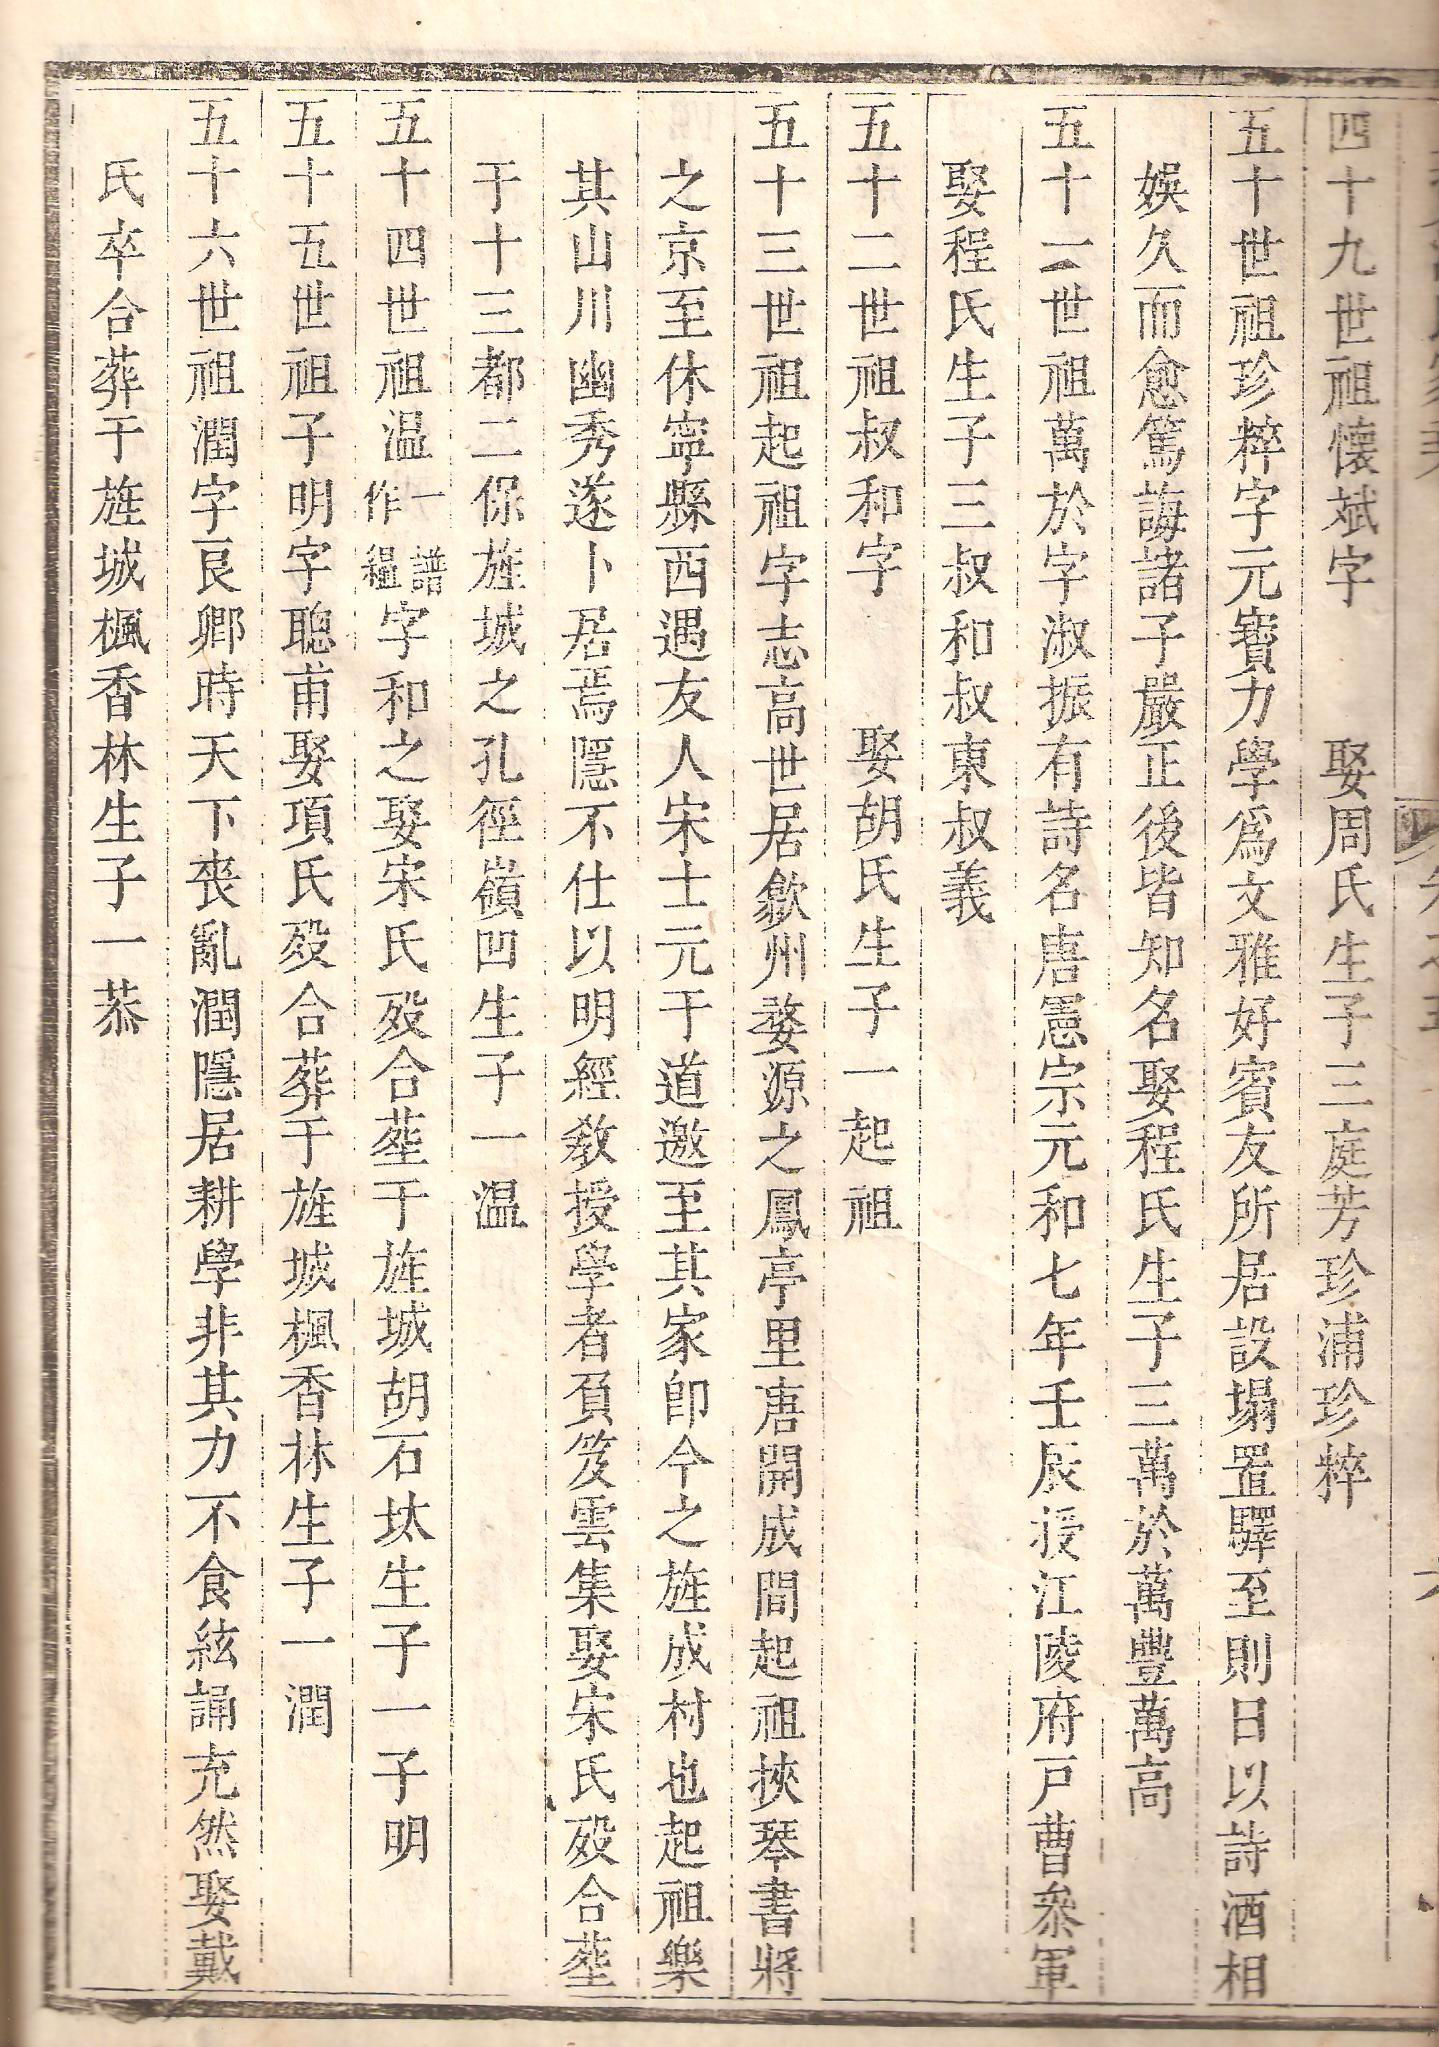 四十九世祖懷斌字　娶周氏生子三庭芳珍浦珍粹
五十世祖珍粹字元寶力學爲文雅好賓友所居設塌置驛至則日以詩酒相
娛久而愈篤誨諸子嚴正後皆知名娶程氏生子三萬於萬豐萬高
五十一世祖萬於字淑振有詩名唐憲宗元和七年壬辰授江陵府戸曹叅軍
娶程氏生子三叔和叔東叔義
五十二世祖叔和字　娶胡氏生子一起祖
五十三世祖起祖字志高世居歙州婺源之鳳亭里唐開成間起祖挾琴書將
之京至休寧縣西遇友人宋士元于道邀至其家卽今之旌成村也起祖樂
其山川幽秀遂卜居焉隱不仕以明經敎授學者負笈雲集娶宋氏殁合塟
于十三都二保旌城之孔徑嶺凹生子一温
五十四世祖温一譜作緼字和之娶宋氏殁合塟于旌城胡石㘲生子一子明
五十五世祖子明字聰甫娶項氏殁合葬于旌城楓香林生子一潤
五十六世祖潤字艮卿時天下喪亂潤隱居耕學非其力不食絃誦充然娶戴
氏卒合葬于旌城楓香林生子一恭